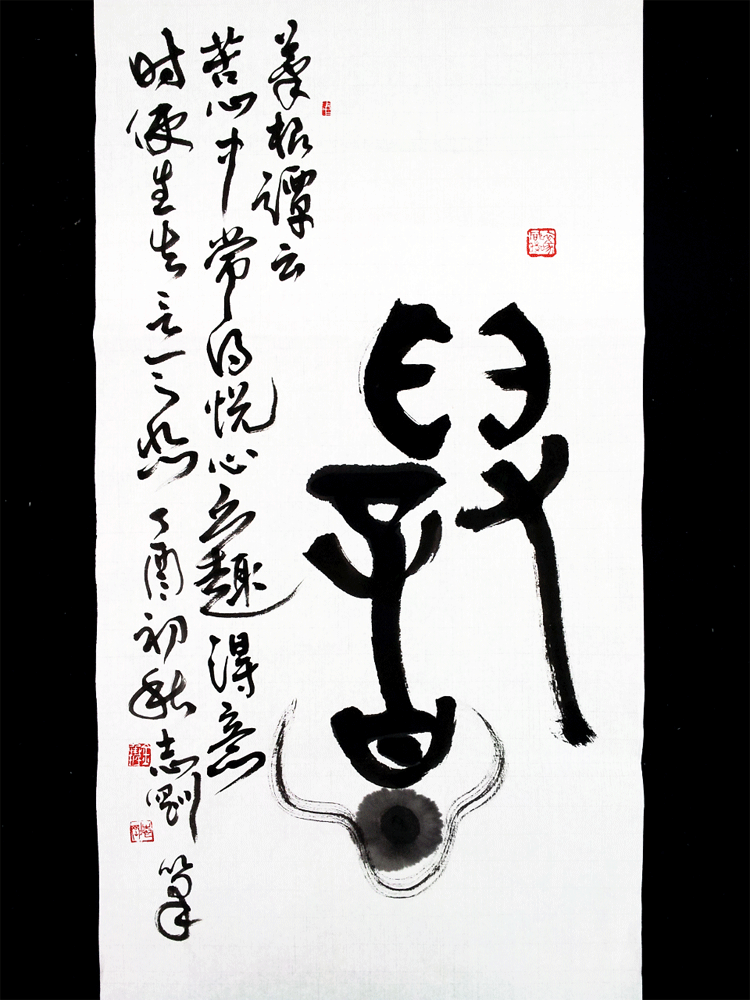 菜根譚云
苦心中常得悦心之趣得意
时便生失意之悲丁酉初秋志剛筆